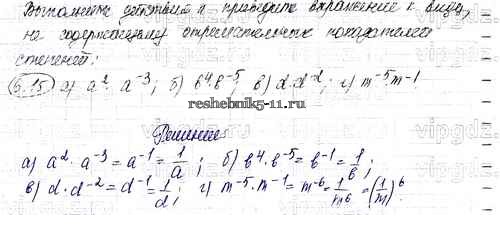 Выполните действия и приведите выражение к виду,
не содержащему отрицательных показателей
степеней:
5.15 а) a². a⁻³; б) b⁴.b⁻⁵; в) d.d⁻²; г) m⁻⁵.m⁻¹
reshebnik5-11.ru
Решение
а) a² . a⁻³ = a⁻¹ = 1/a ; б) b⁴. b⁻⁵ = b⁻¹ = 1/b ;
в) d . d⁻² = d⁻¹ = 1/d ; г) m⁻⁵. m⁻¹ = m⁻⁶ = 1/m⁶ = (1/m)⁶.